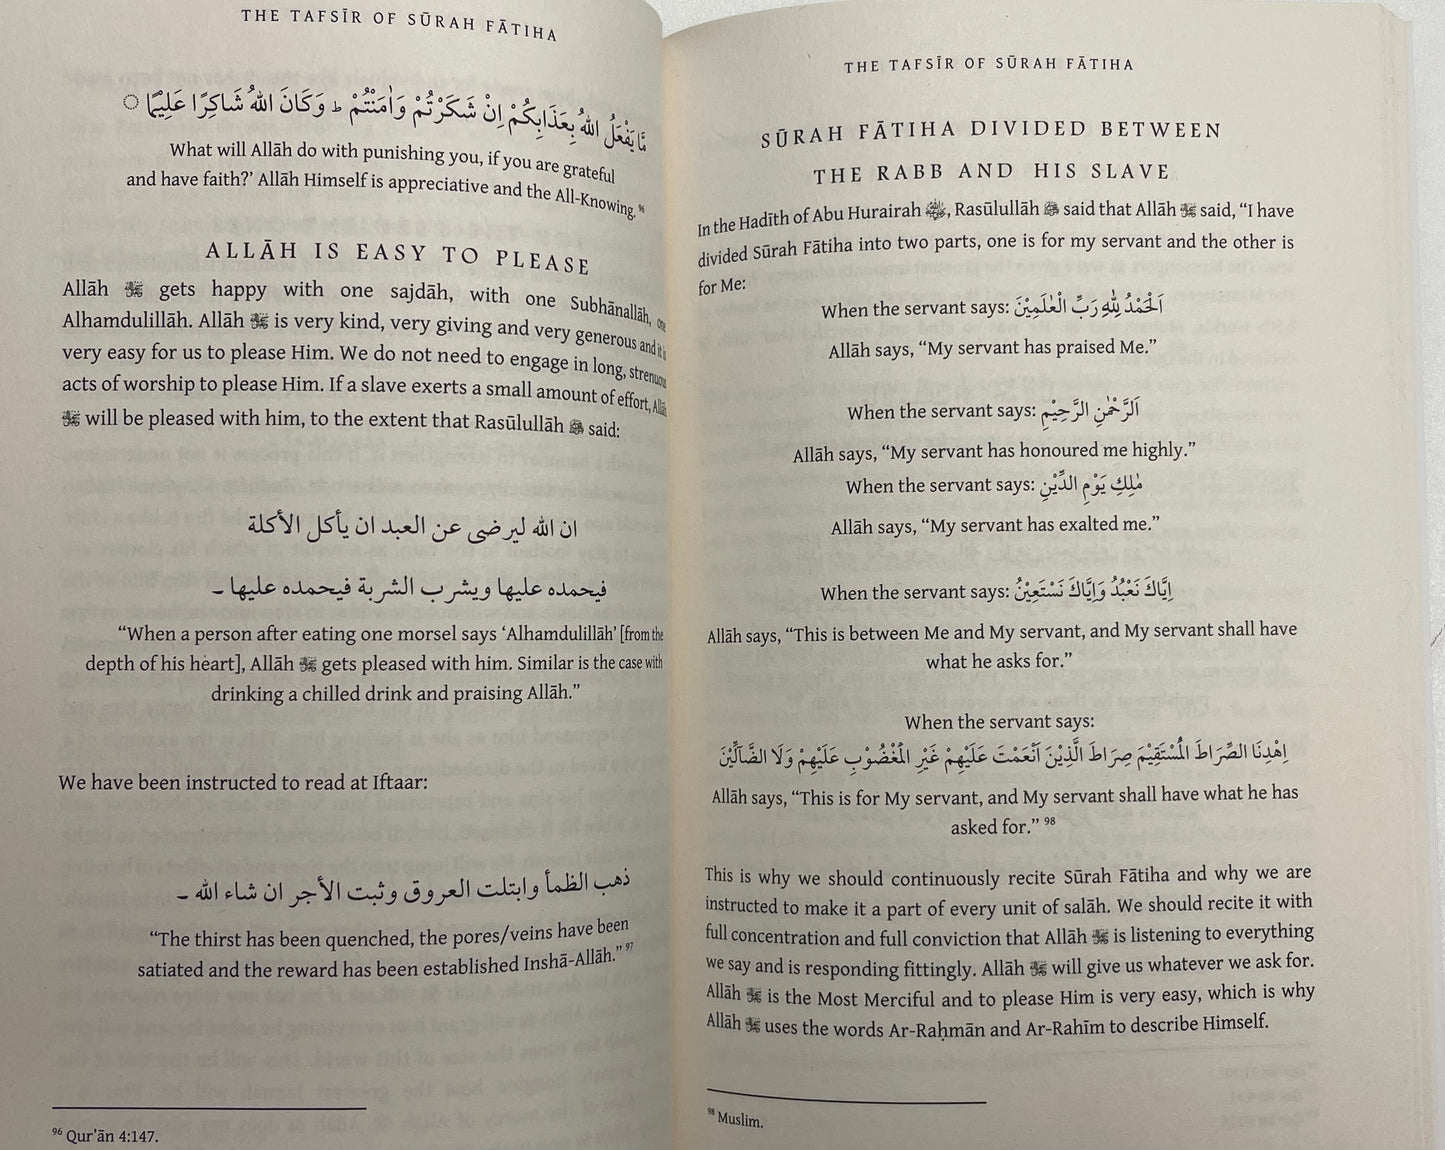 THE TAFSĪR OF SŪRAH FĀTIHA
مَّا يَفْعَلُ اللهُ بِعَذَابِكُمْ اِنْ شَكَرْتُمْ وَاٰمَنْتُمْ ط وَكَانَ اللهُ شَاكِرًا عَلِيْمًا ○
What will Allāh do with punishing you, if you are grateful
and have faith?’ Allāh Himself is appreciative and the All-Knowing. 96
ALLĀH IS EASY TO PLEASE
Allāh ﷻ gets happy with one sajdāh, with one Subhānallāh, one
Alhamdulillāh. Allāh ﷻ is very kind, very giving and very generous and it is
very easy for us to please Him. We do not need to engage in long, strenuous
acts of worship to please Him. If a slave exerts a small amount of effort, Allāh
ﷻ will be pleased with him, to the extent that Rasūlullāh ﷺ said:
ان الله ليرضى عن العبد ان يأكل الأكلة
فيحمده عليها ويشرب الشربة فيحمده عليها ـ
“When a person after eating one morsel says ‘Alhamdulillāh’ [from the
depth of his heart], Allāh ﷻ gets pleased with him. Similar is the case with
drinking a chilled drink and praising Allāh.”
We have been instructed to read at Iftaar:
ذهب الظمأ وابتلت العروق وثبت الأجر ان شاء الله ـ
“The thirst has been quenched, the pores/veins have been
satiated and the reward has been established Inshā-Allāh.” 97
96 Qur’ān 4:147.
THE TAFSĪR OF SŪRAH FĀTIHA
SŪRAH FĀTIHA DIVIDED BETWEEN
THE RABB AND HIS SLAVE
In the Hadīth of Abu Hurairah, Rasūlullāh ﷺ said that Allāh ﷻ said, “I have
divided Sūrah Fātiha into two parts, one is for my servant and the other is
for Me:
When the servant says: اَلْحَمْدُ لِلّٰهِ رَبِّ الْعٰلَمِيْنَ
Allāh says, “My servant has praised Me.”
When the servant says: اَلرَّحْمٰنِ الرَّحِيْمِ
Allāh says, “My servant has honoured me highly.”
When the servant says: مٰلِكِ يَوْمِ الدِّيْنِ
Allāh says, “My servant has exalted me.”
When the servant says: اِيَّاكَ نَعْبُدُ وَاِيَّاكَ نَسْتَعِيْنُ
Allāh says, “This is between Me and My servant, and My servant shall have
what he asks for.”
When the servant says:
اِهْدِنَا الصِّرَاطَ الْمُسْتَقِيْمَ صِرَاطَ الَّذِيْنَ اَنْعَمْتَ عَلَيْهِمْ غَيْرِ الْمَغْضُوْبِ عَلَيْهِمْ وَلَا الضَّآلِّيْنَ
Allāh says, “This is for My servant, and My servant shall have what he has
asked for.” 98
This is why we should continuously recite Sūrah Fātiha and why we are
instructed to make it a part of every unit of salāh. We should recite it with
full concentration and full conviction that Allāh ﷻ is listening to everything
we say and is responding fittingly. Allāh ﷻ will give us whatever we ask for.
Allāh ﷻ is the Most Merciful and to please Him is very easy, which is why
Allāh ﷻ uses the words Ar-Raḥmān and Ar-Rahīm to describe Himself.
98 Muslim.